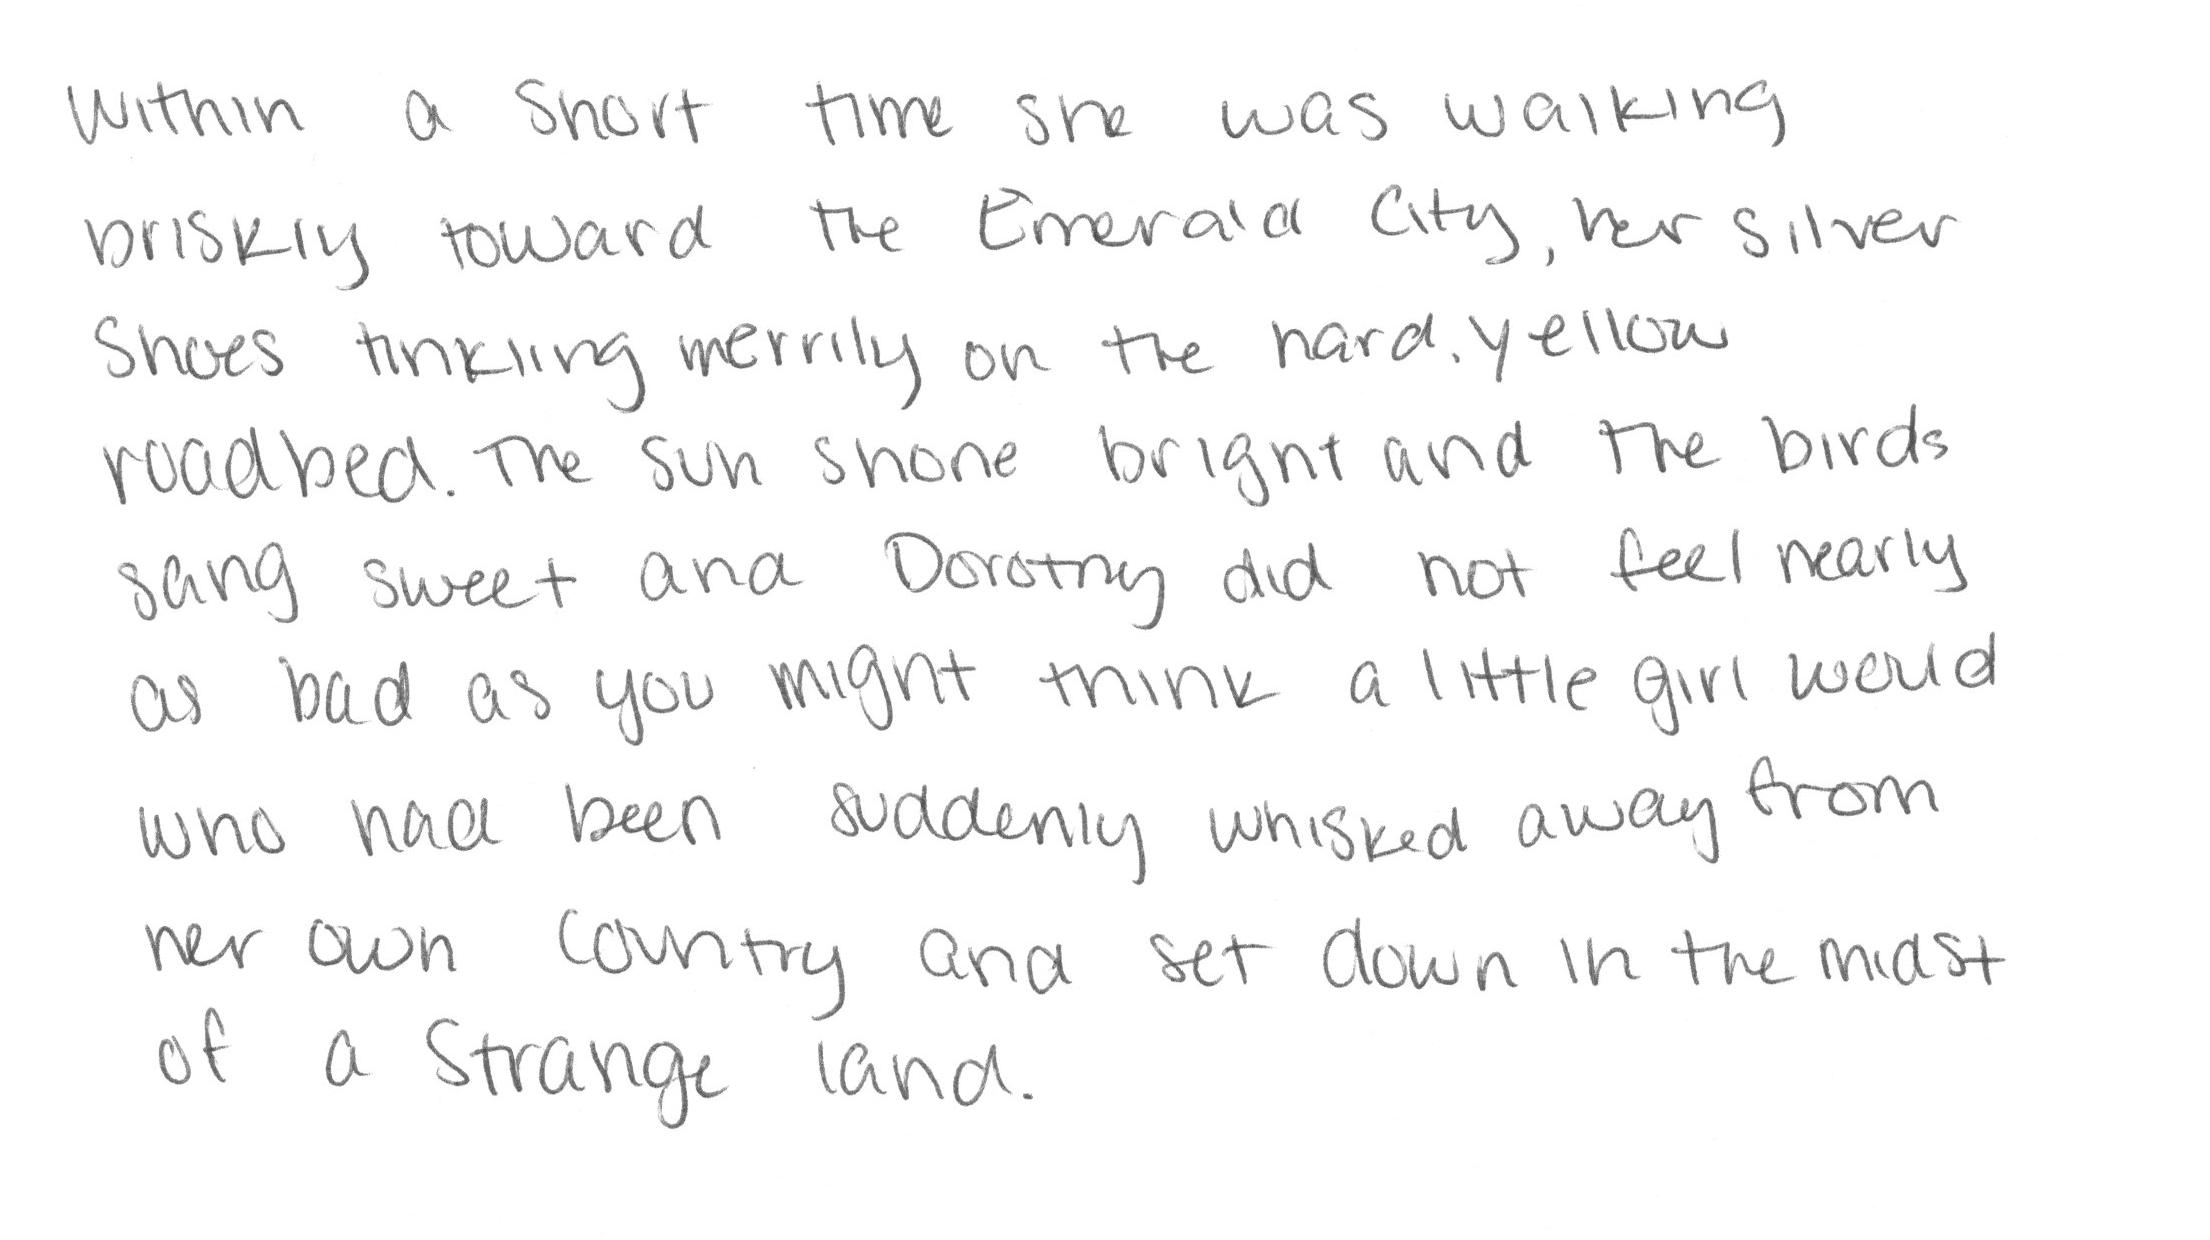 Within a short time she was walking
briskly toward the Emerald City, her silver
Shoes tinkling merrily on the hard, yellow
roadbed. The sun shone bright and the birds
sang sweet and Dorothy did not feel nearly
as bad as you might think a little girl would
who had been suddenly whisked away from
her own country and set down in the midst
of a strange land.